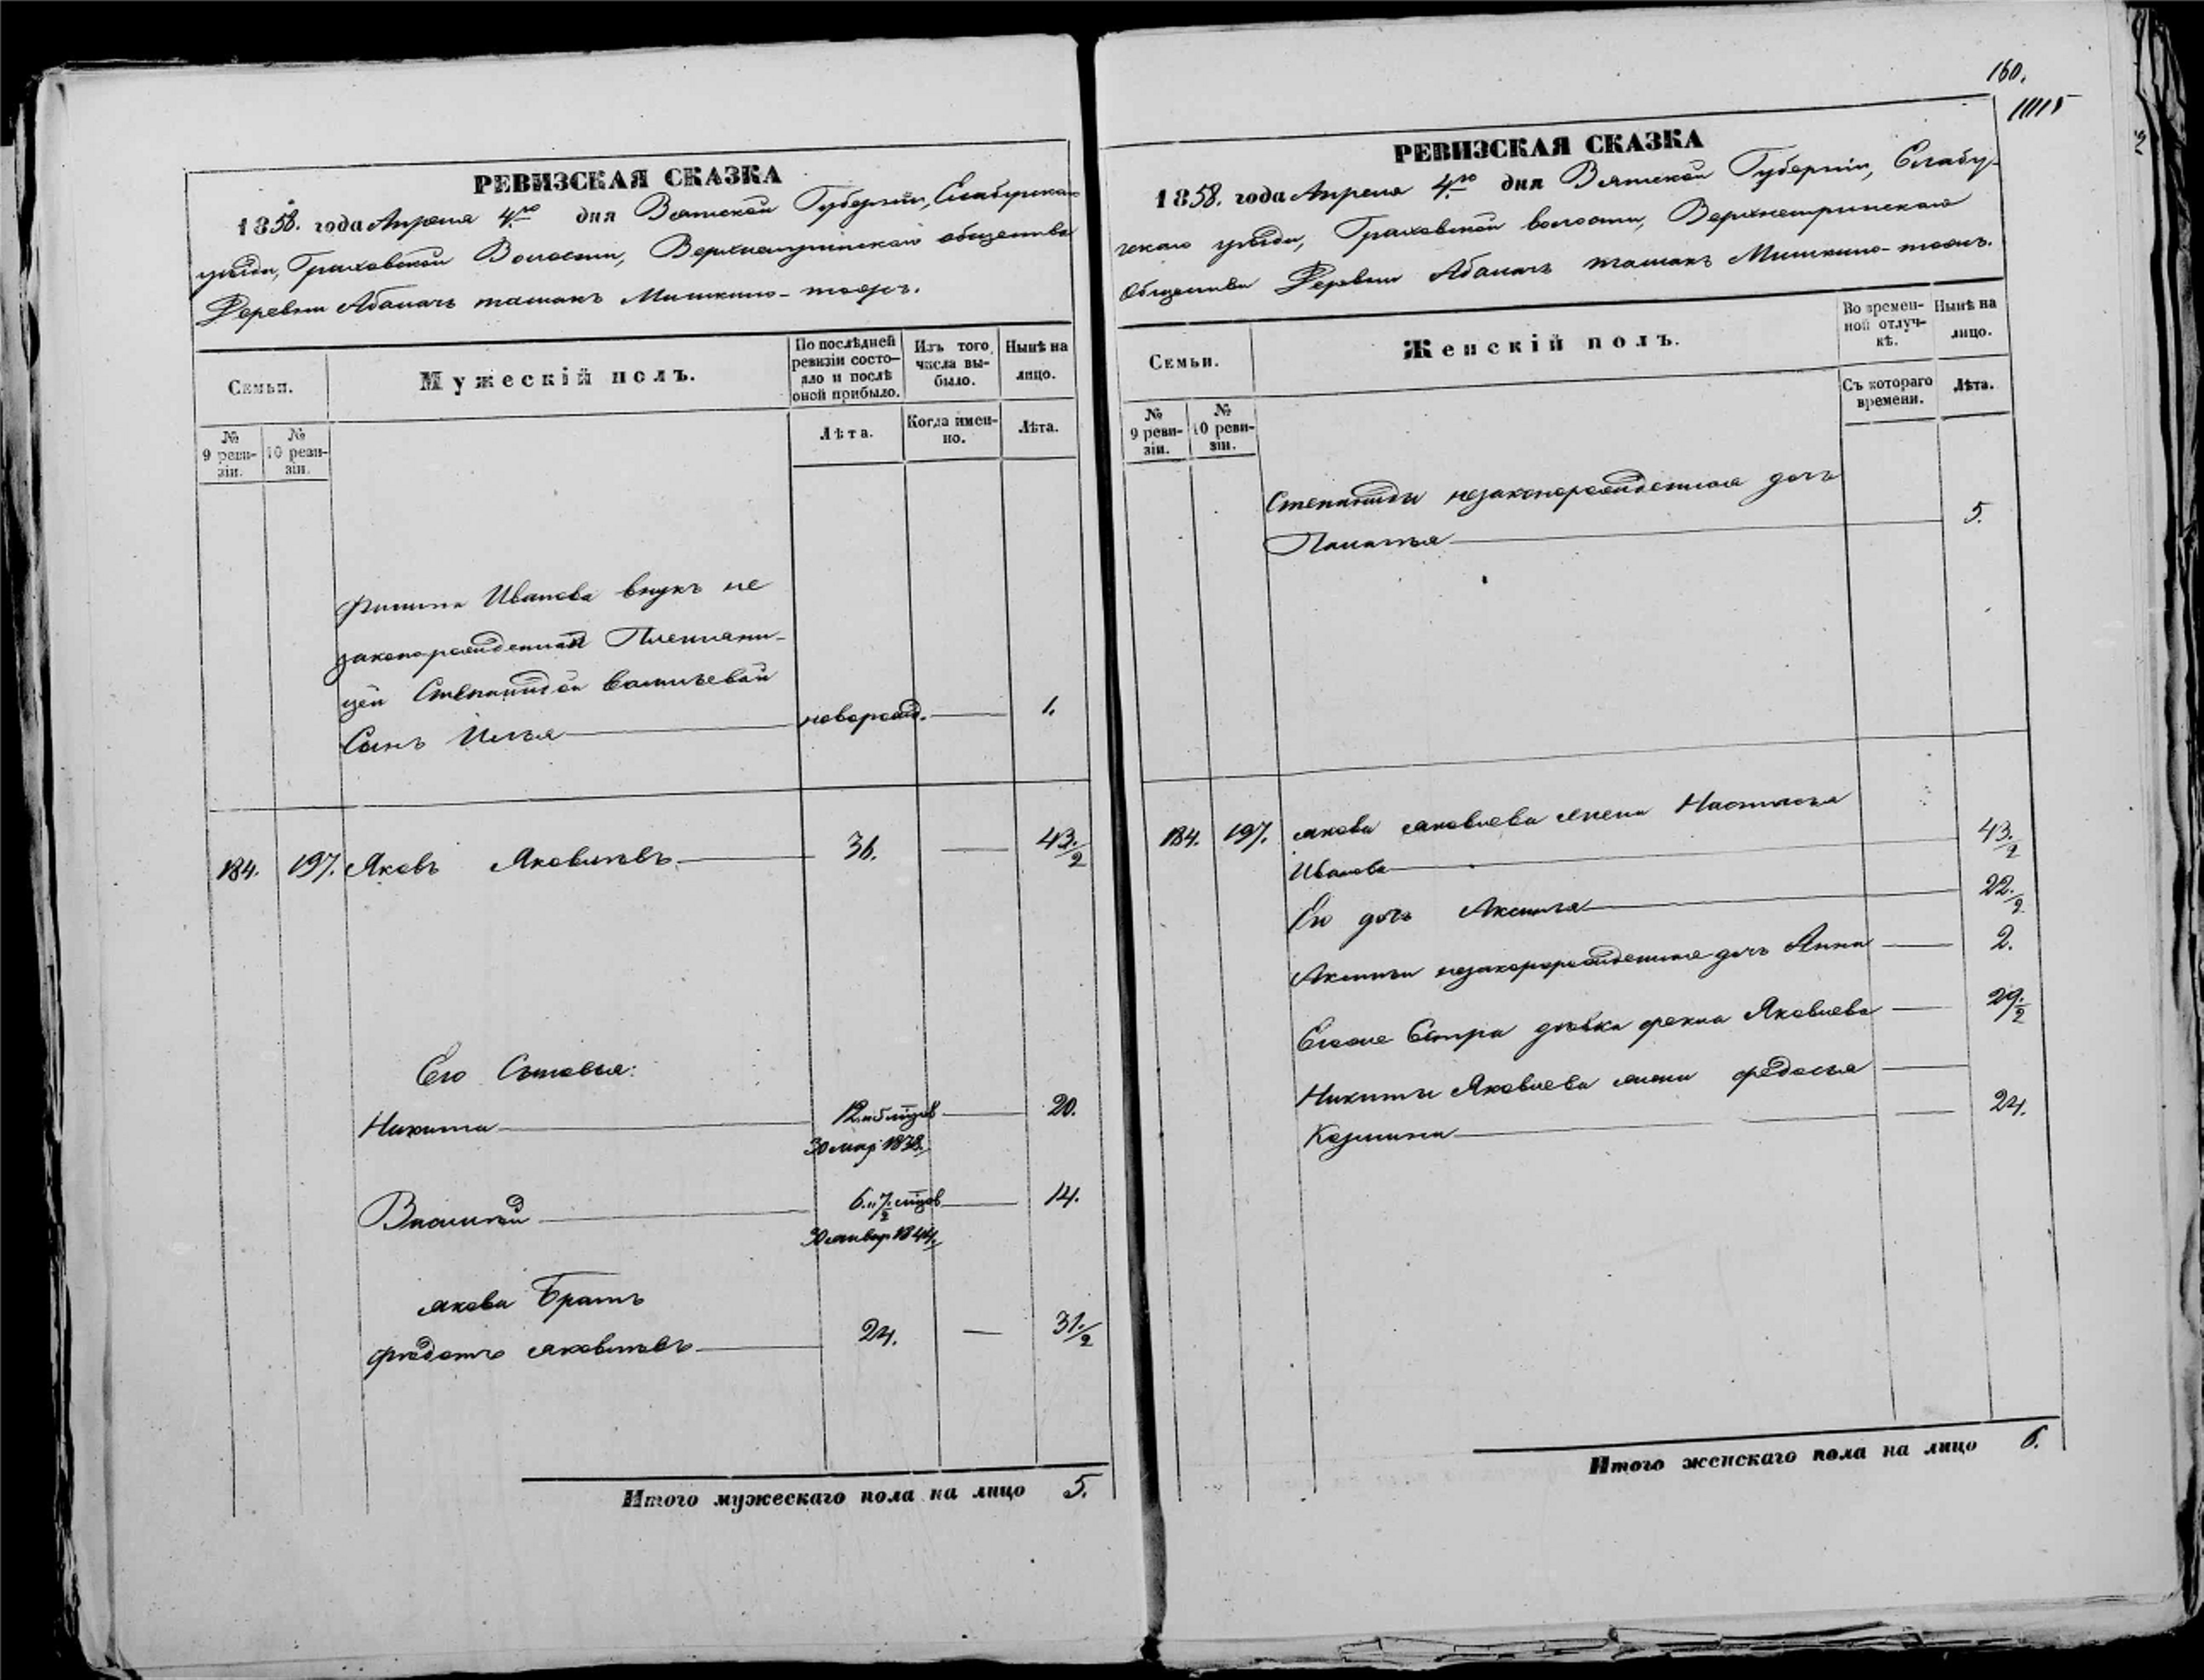 РЕВИЗСКАЯ СКАЗКА
1858. года Апреля 4го дня Вятской Губерніи, Елабужскаго
уѣзда, Граховской Волости, общества
Деревни Мишкино-
Семьи.
Мужескій полъ.
По послѣдней ревизіи состояло и послѣ оной прибыло.
Изъ того числа выбыло.
Нынѣ на лицо.
№ 9 ревизіи.
№ 10 ревизіи.
Лѣта.
Когда именно.
Лѣта.
Филипа Иванова внукъ не
законорожденный Племянни-
цей Степанидой Васильевой
Сынъ Илья новорожд. — 1.
184. 197. Яковъ Яковлевъ 36. — 43./2
Его Сыновья:
Никита — 20.
30 мар: 1838.
Василей 6. 7/2 мцов — 14.
30 январ 1844.
Якова Братъ
Федотъ Яковлевъ 24. — 31./2
Итого мужескаго пола на лицо 5.
160.
1115
РЕВИЗСКАЯ СКАЗКА
1858. года Апреля 4го дня Вятской Губерніи, Елабу-
жскаго уѣзда, Граховской волости,
Общества Деревни Мишкино-
Семьи.
Женскій полъ.
Во временной отлучкѣ.
Нынѣ на лицо.
№ 9 ревизіи.
№ 10 ревизіи.
Съ котораго времени.
Лѣта.
Степаниды незаконорожденная дочь
5.
184. 197. Якова Яковлева жена Настасья
Иванова 43./2
Его дочь Аксинья 22./2
Аксиньи незаконорожденная дочь Анна — 2.
Сестра дѣвка Фекла Яковлева — 29./2
Никиты Яковлева жена Федосья —
Козмина — 24.
Итого женскаго пола на лицо 6.